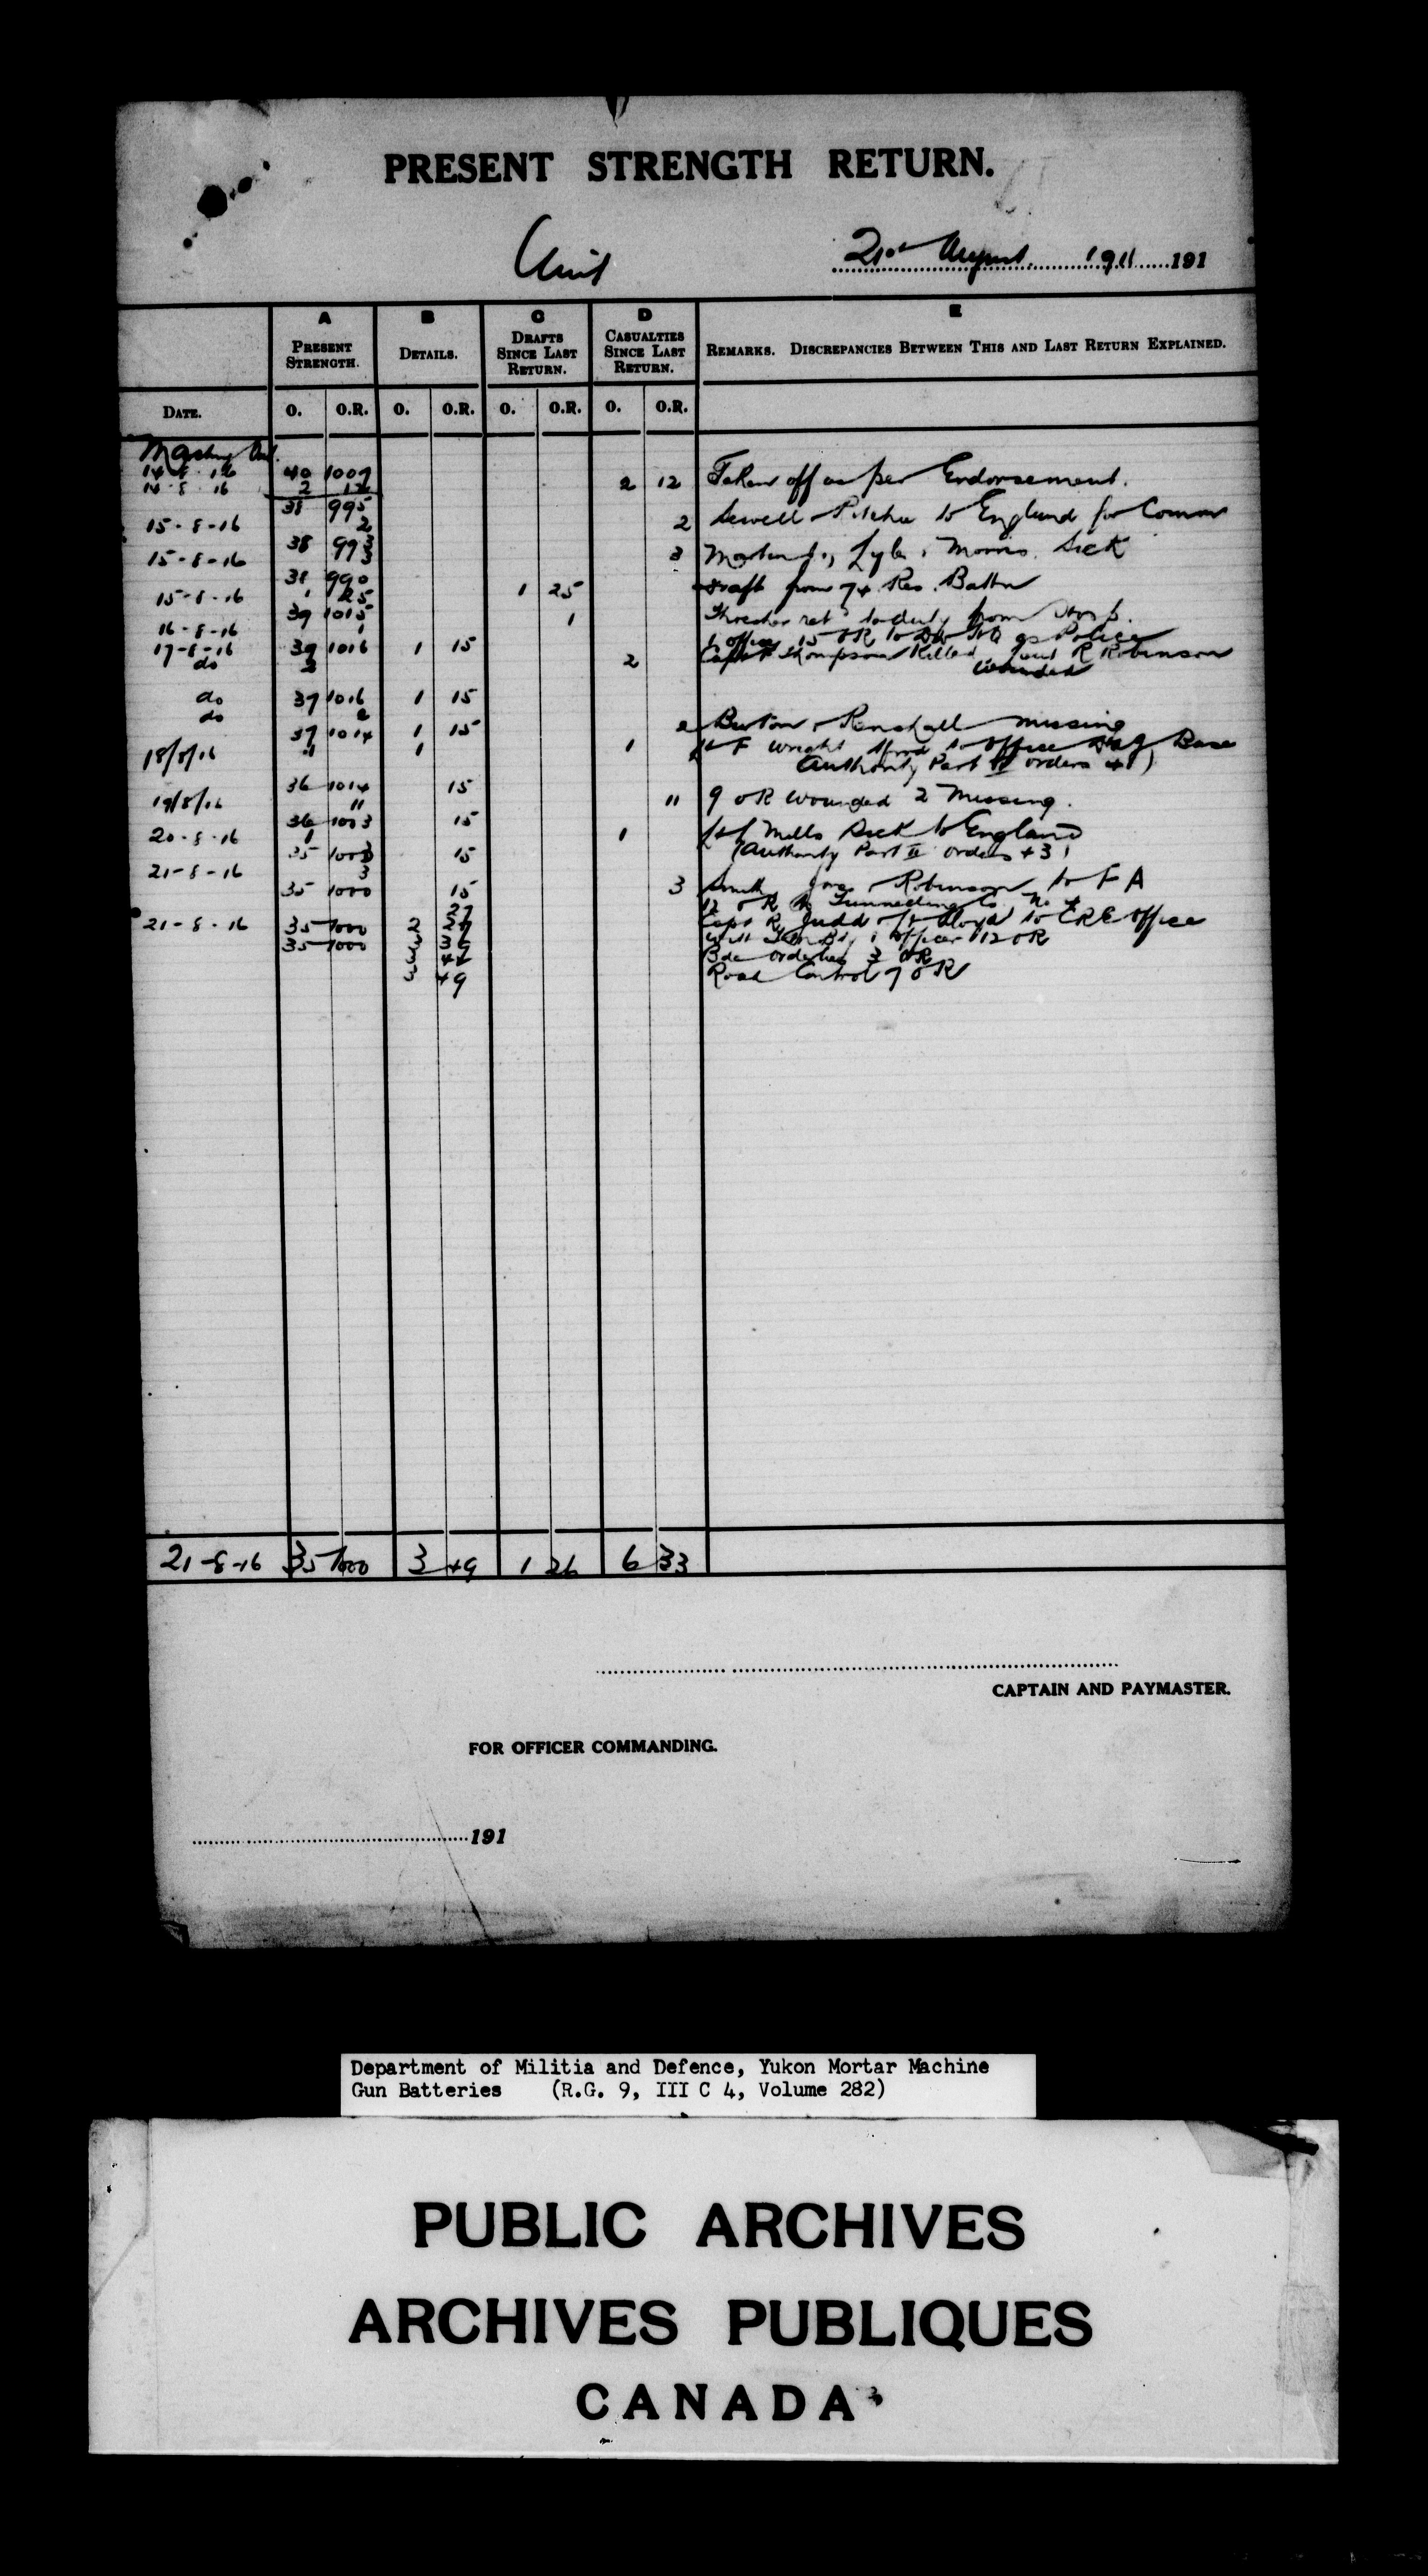 PRESENT STRENGTH RETURN.
Unit 21st August 1911 191
A B C D E
PRESENT STRENGTH. DETAILS. DRAFTS SINCE LAST RETURN. CASUALTIES SINCE LAST RETURN. REMARKS. DISCREPANCIES BETWEEN THIS AND LAST RETURN EXPLAINED.
DATE. O. O.R. O. O.R. O. O.R. O. O.R.
14-8-16 40 1007
14-8-16 2 12 2 12 Taken off as per Endorsement.
38 995
15-8-16 2 2 Sewell & to England for
38 993
15-8-16 3 3 Lyle, Morris Sick
38 990
15-8-16 1 25 1 25 Draft from 74 Res. Battn
39 1015
16-8-16 1 1 Thresher ret to duty from
17-8-16 39 1016 1 15 1 officer 15 OR to Div HQ as Police
do 2 2 Capt Thompson Killed Lieut R Robinson
wounded
do 37 1016 1 15
do 2 2 Burton & Renshall missing
37 1014 1 15
18/8/16 1 1 1 Lt F Wright to office Base
Authority Part II orders 41)
36 1014 15
19/8/16 11 11 9 OR wounded 2 Missing.
36 1003 15
20-8-16 1 1 Mills Sick to England
35 1003 15 (Authority Part II orders 43)
21-8-16 3 3 Smith, Jones & Robinson to F A
35 1000 15
27 12 OR Tunnelling Co. No 4
21-8-16 35 1000 2 27 Capt R Judd & Lt Lloyd to CRE Office
35 1000 3 39 1 officer 12 OR
3 42 Bde orderlies 3 OR
3 49 Road Control 7 OR
21-8-16 35 1000 3 49 1 26 6 33
CAPTAIN AND PAYMASTER.
FOR OFFICER COMMANDING.
191
Department of Militia and Defence, Yukon Mortar Machine
Gun Batteries (R.G. 9, III C 4, Volume 282)
PUBLIC ARCHIVES
ARCHIVES PUBLIQUES
CANADA